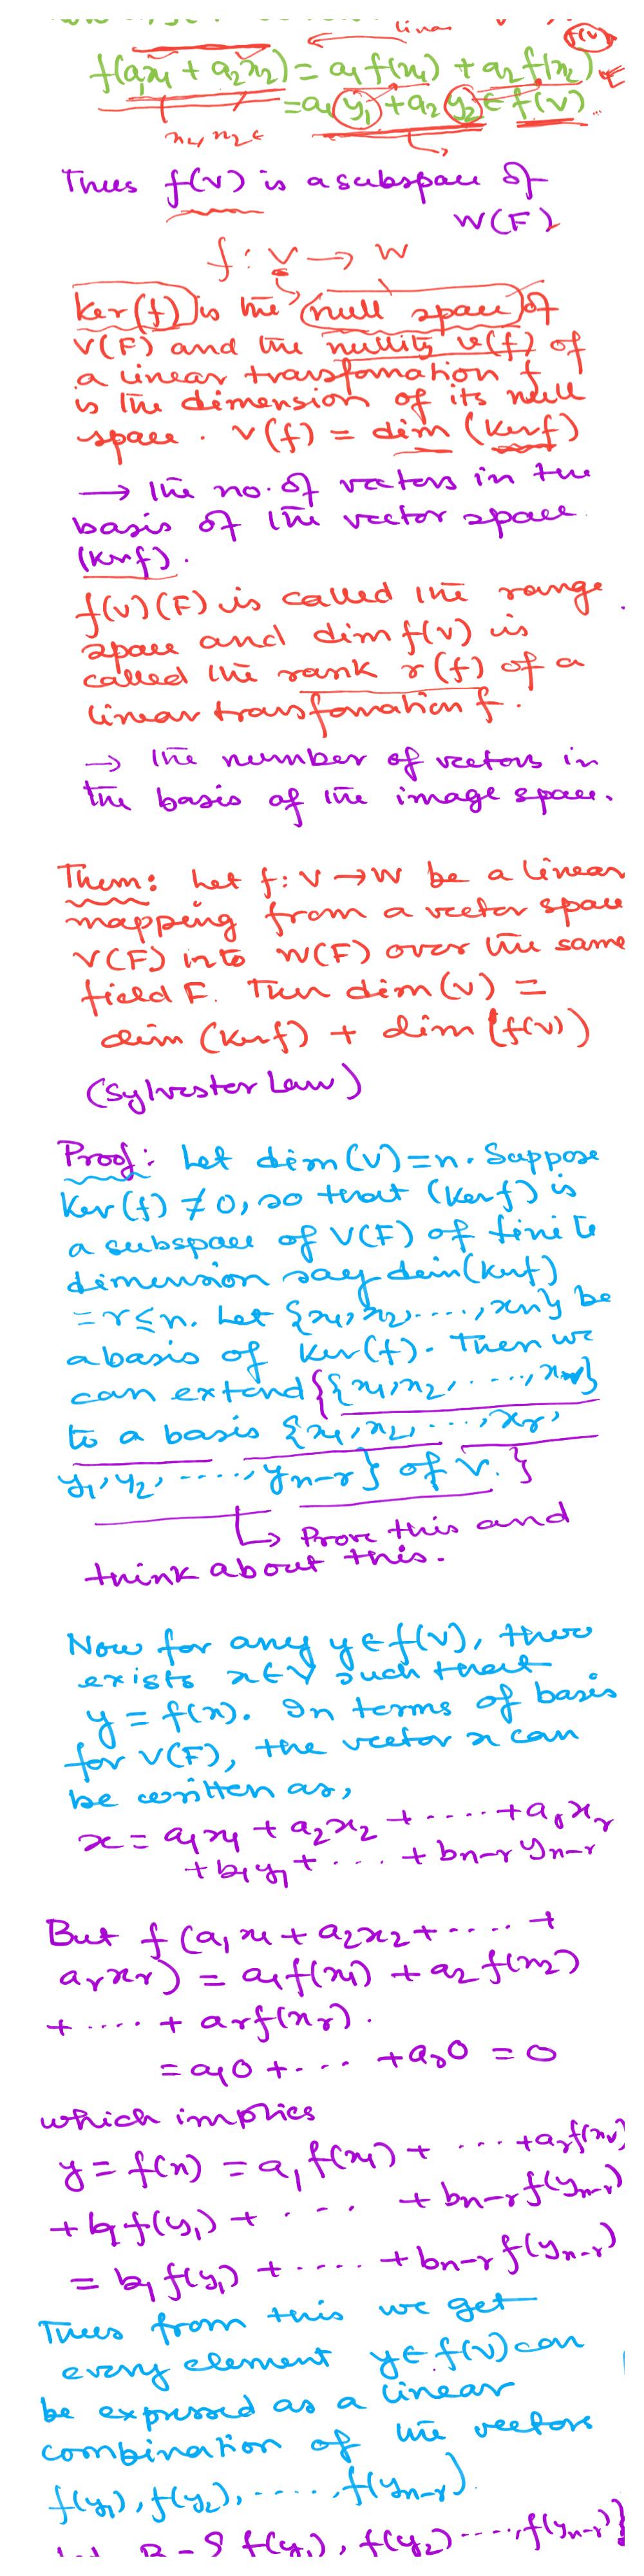 linear
f(v)
f(a₁x₁ + a₂x₂) = a₁f(x₁) + a₂f(x₂)
= a₁y₁ + a₂y₂ ∈ f(v)
x₁, x₂ ∈
Thus f(v) is a subspace of
W(F)
f : V → W
Ker(f) is the null space of
V(F) and the nullity ν(f) of
a linear transfomation f
is the dimension of its null
space. ν(f) = dim (Kerf)
→ the no. of vectors in the
basis of the vector space
(Kerf).
f(v)(F) is called the range
space and dim f(v) is
called the rank r(f) of a
linear transfomation f.
→ the number of vectors in
the basis of the image space.
Them: Let f: V → W be a linear
mapping from a vector space
V(F) into W(F) over the same
field F. Then dim(v) =
dim (Kerf) + dim (f(v))
(Sylvester Law)
Proof: Let dim(v)=n. Suppose
Ker(f) ≠ 0, so that (Kerf) is
a subspace of V(F) of finite
dimension say dim(Kerf)
= r ≤ n. Let {x₁, x₂, ...., xn} be
a basis of Ker(f). Then we
can extend {{x₁, x₂, ...., xr}
to a basis {x₁, x₂, ..., xr,
y₁, y₂, ...., yn-r} of V.}
↳ Prove this and
think about this.
Now for any y ∈ f(v), there
exists x ∈ V such that
y = f(x). In terms of basis
for V(F), the vector x can
be written as,
x = a₁x₁ + a₂x₂ + .... + arxr
+ b₁y₁ + ... + bn-r yn-r
But f(a₁x₁ + a₂x₂ + .... +
arxr) = a₁f(x₁) + a₂f(x₂)
+ .... + arf(xr).
= a₁0 + .... + ar0 = 0
which implies
y = f(x) = a₁f(x₁) + .... + arf(xr)
+ b₁f(y₁) + .... + bn-rf(yn-r)
= b₁f(y₁) + .... + bn-rf(yn-r)
Thus from this we get
every element y ∈ f(v) can
be expressed as a linear
combination of the vectors
f(y₁), f(y₂), ....., f(yn-r).
Let B = {f(y₁), f(y₂) ....., f(yn-r)}